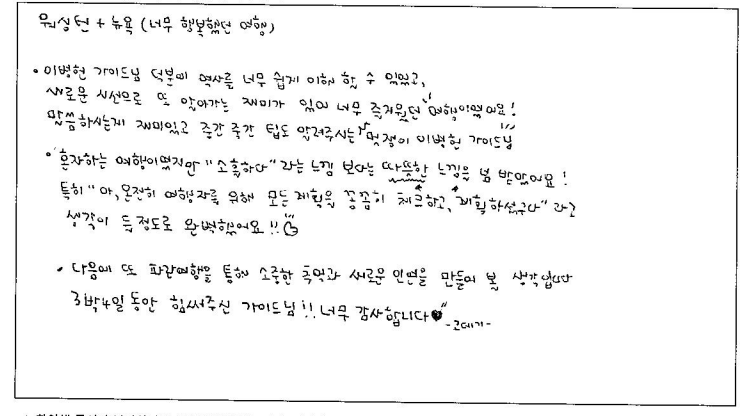 워싱턴 + 뉴욕 (너무 행복했던 여행)
• 이병헌 가이드님 덕분에 역사를 너무 쉽게 이해 할 수 있었고,
새로운 시선으로 또 알아가는 재미가 있어 너무 즐거웠던 여행이였어요!
말씀하시는게 재미있고 중간 중간 팁도 알려주시는 멋쟁이 이병헌 가이드님
• 혼자하는 여행이였지만 "소홀하다" 라는 느낌 보다는 따뜻한 느낌을 넘 받았어요!
특히 "아, 온전히 여행자를 위해 모든 계획을 꼼꼼히 체크하고, 계획하셨구나" 라는
생각이 들정도로 완벽했어요!!
• 다음에 또 파란여행을 통해 소중한 추억과 새로운 인연을 만들어 볼 생각입니다
3박4일 동안 힘써주신 가이드님!! 너무 감사합니다♥